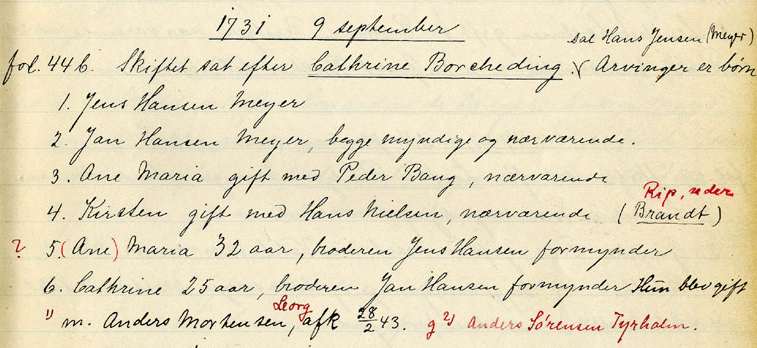 1731 9 september
sal Hans Jensen (Meyer)
fol. 446. Skiftet sat efter Cathrine Borcheding. Arvinger er børn
1. Jens Hansen Meyer
2. Jan Hansen Meyer, begge myndige og nærværende.
3. Ane Maria gift med Peder Bang, nærværende
Rip, seder
4. Kirsten gift med Hans Nielsen, nærværende (Brandt)
? 5. (Ane) Maria 32 aar, broderen Jens Hansen formynder
6. Cathrine 25 aar, broderen Jan Hansen formynder Hun blev gift
Georg
" m. Anders Mortensen, afk 28/2 43. g 2) Anders Sørensen Tyrholm.